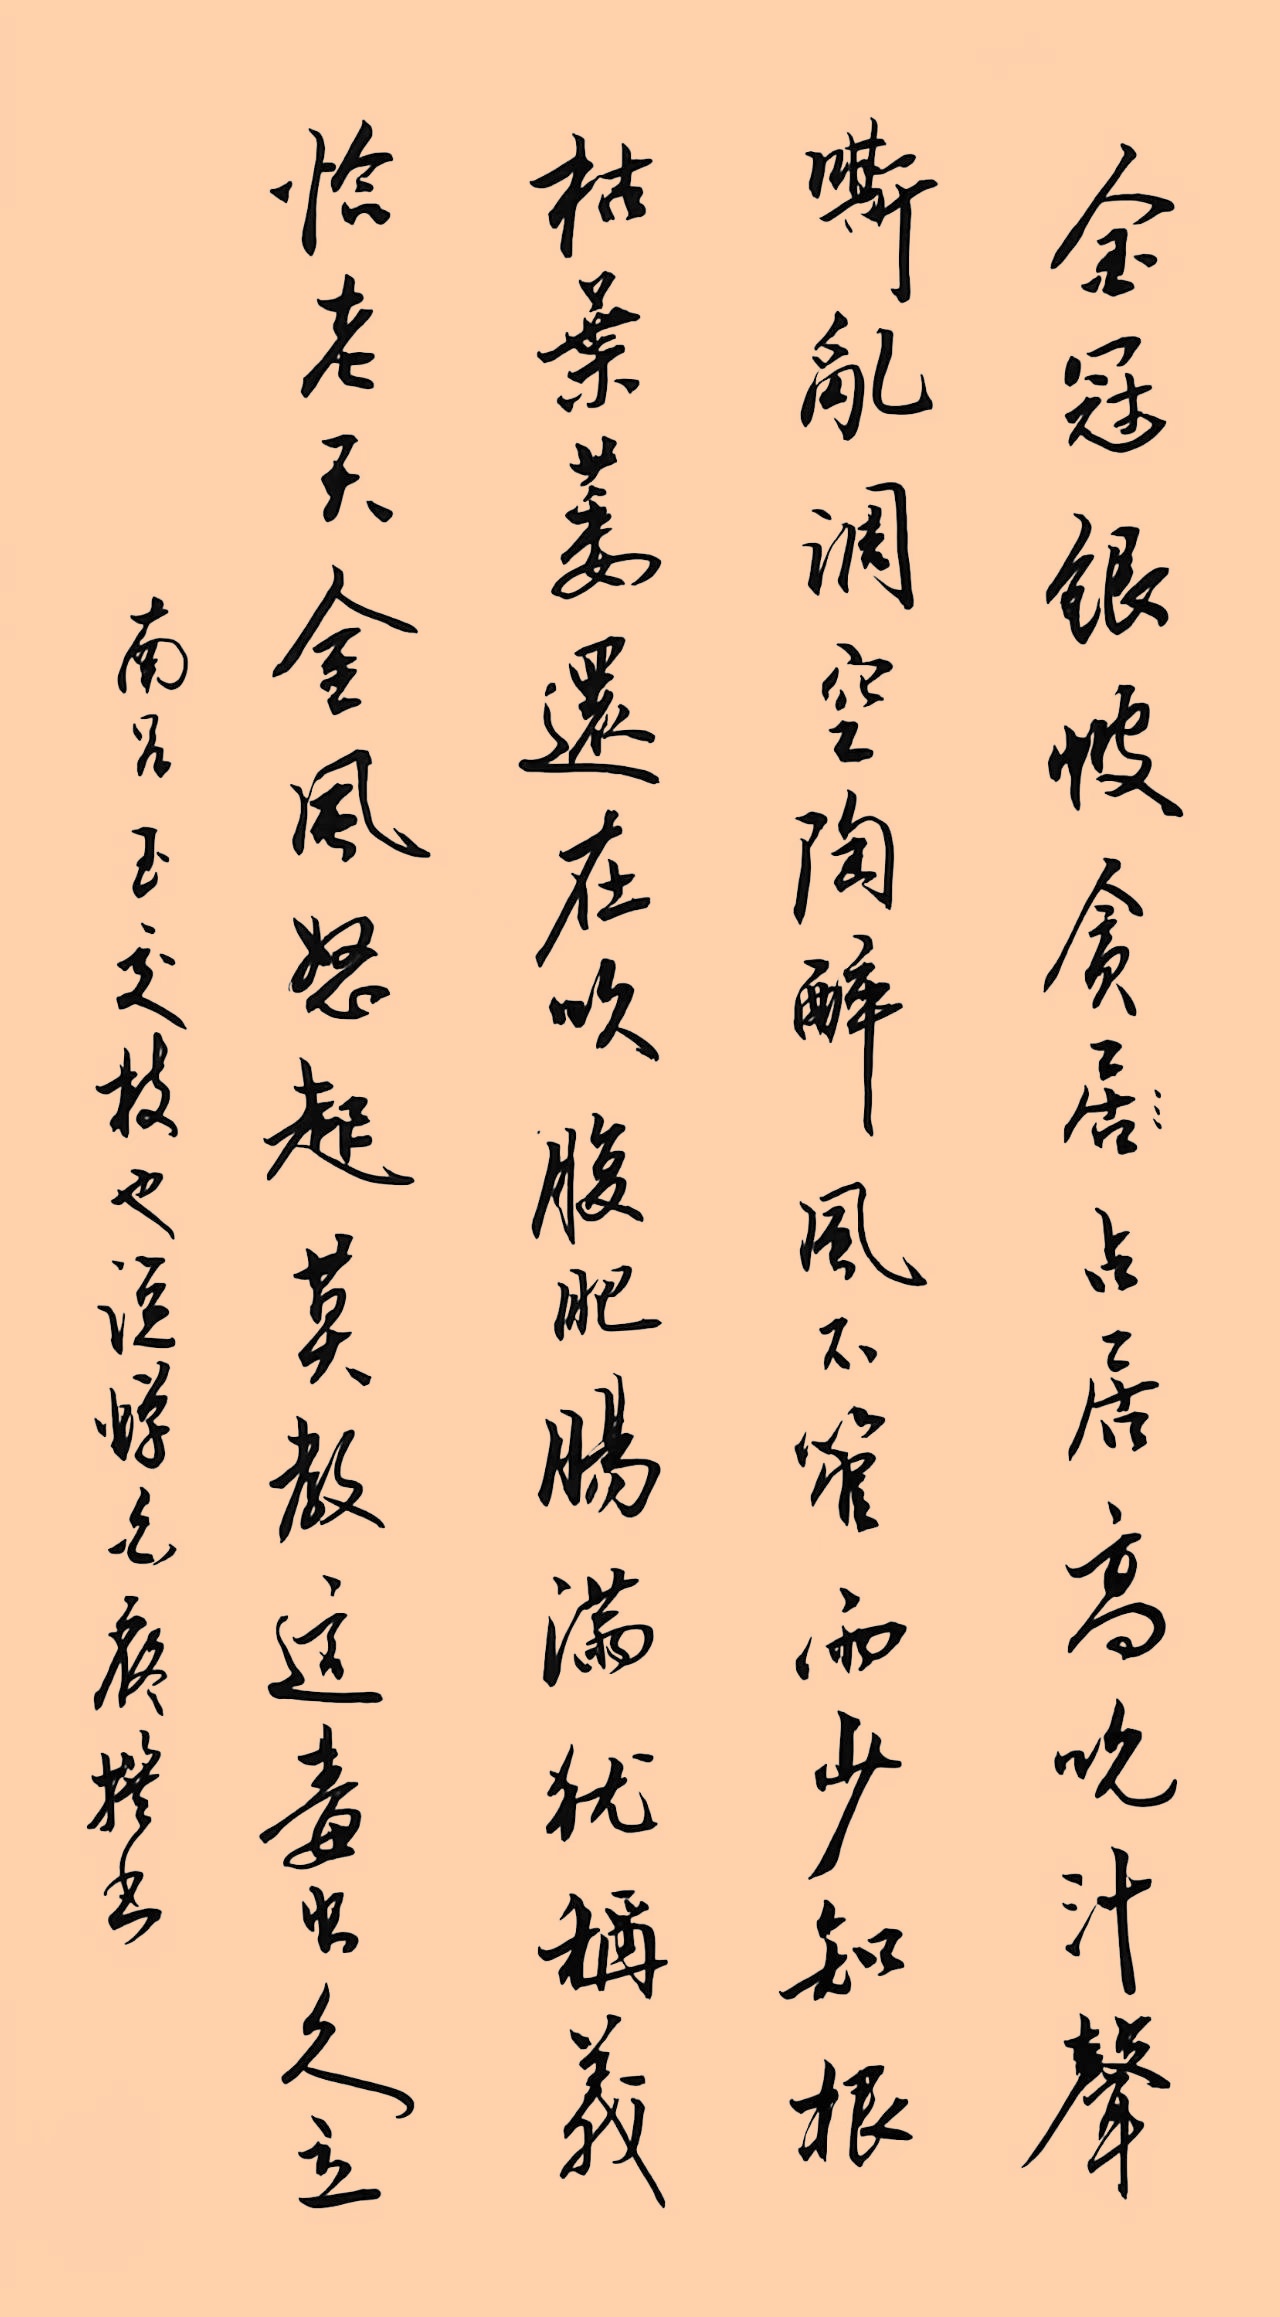 金冠銀帔貪居占居高吮汁聲
嘶亂調空陶醉風不管雨少知根
枯葉萎還在吹腹肥腸滿猶稱義
恰老天金風怒起莫教這毒虫久立
南呂玉交枝也